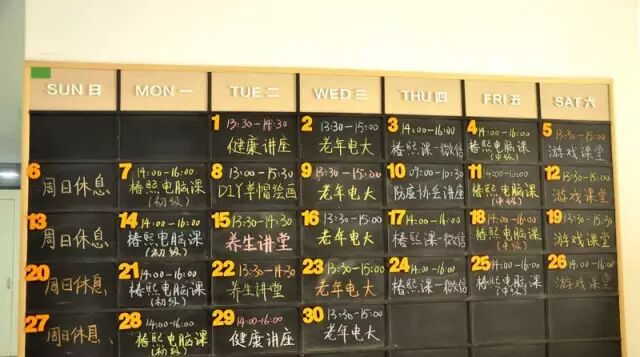 SUN 日 MON 一 TUE 二 WED 三 THU 四 FRI 五 SAT 六
1 13:30-14:30 2 13:30-15:00 3 14:00-16:00 4 14:00-16:00 5 13:30-15:00
健康讲座 老年电大 椿熙课-微信 椿熙电脑课 游戏课堂
(中级)
6 7 14:00-16:00 8 14:00-15:00 9 13:30-15:00 10 09:00-10:30 11 14:00-16:00 12 13:30-15:00
周日休息 椿熙电脑课 DIY草帽绘画 老年电大 防疫协会讲座 椿熙电脑课 游戏课堂
(初级) (中级)
13 14 14:00-16:00 15 13:30-14:30 16 13:30-15:00 17 14:00-16:00 18 14:00-16:00 19 13:30-15:00
周日休息 椿熙电脑课 养生讲堂 老年电大 椿熙课-微信 椿熙电脑课 游戏课堂
(初级) (中级)
20 21 14:00-16:00 22 13:30-14:30 23 13:30-15:00 24 14:00-16:00 25 14:00-16:00 26 13:30-15:00
周日休息 椿熙电脑课 养生讲堂 老年电大 椿熙课-微信 椿熙电脑课 游戏课堂
(初级) (中级)
27 28 14:00-16:00 29 14:00-16:00 30
周日休息 椿熙电脑课 健康讲座 老年电大
(初级)